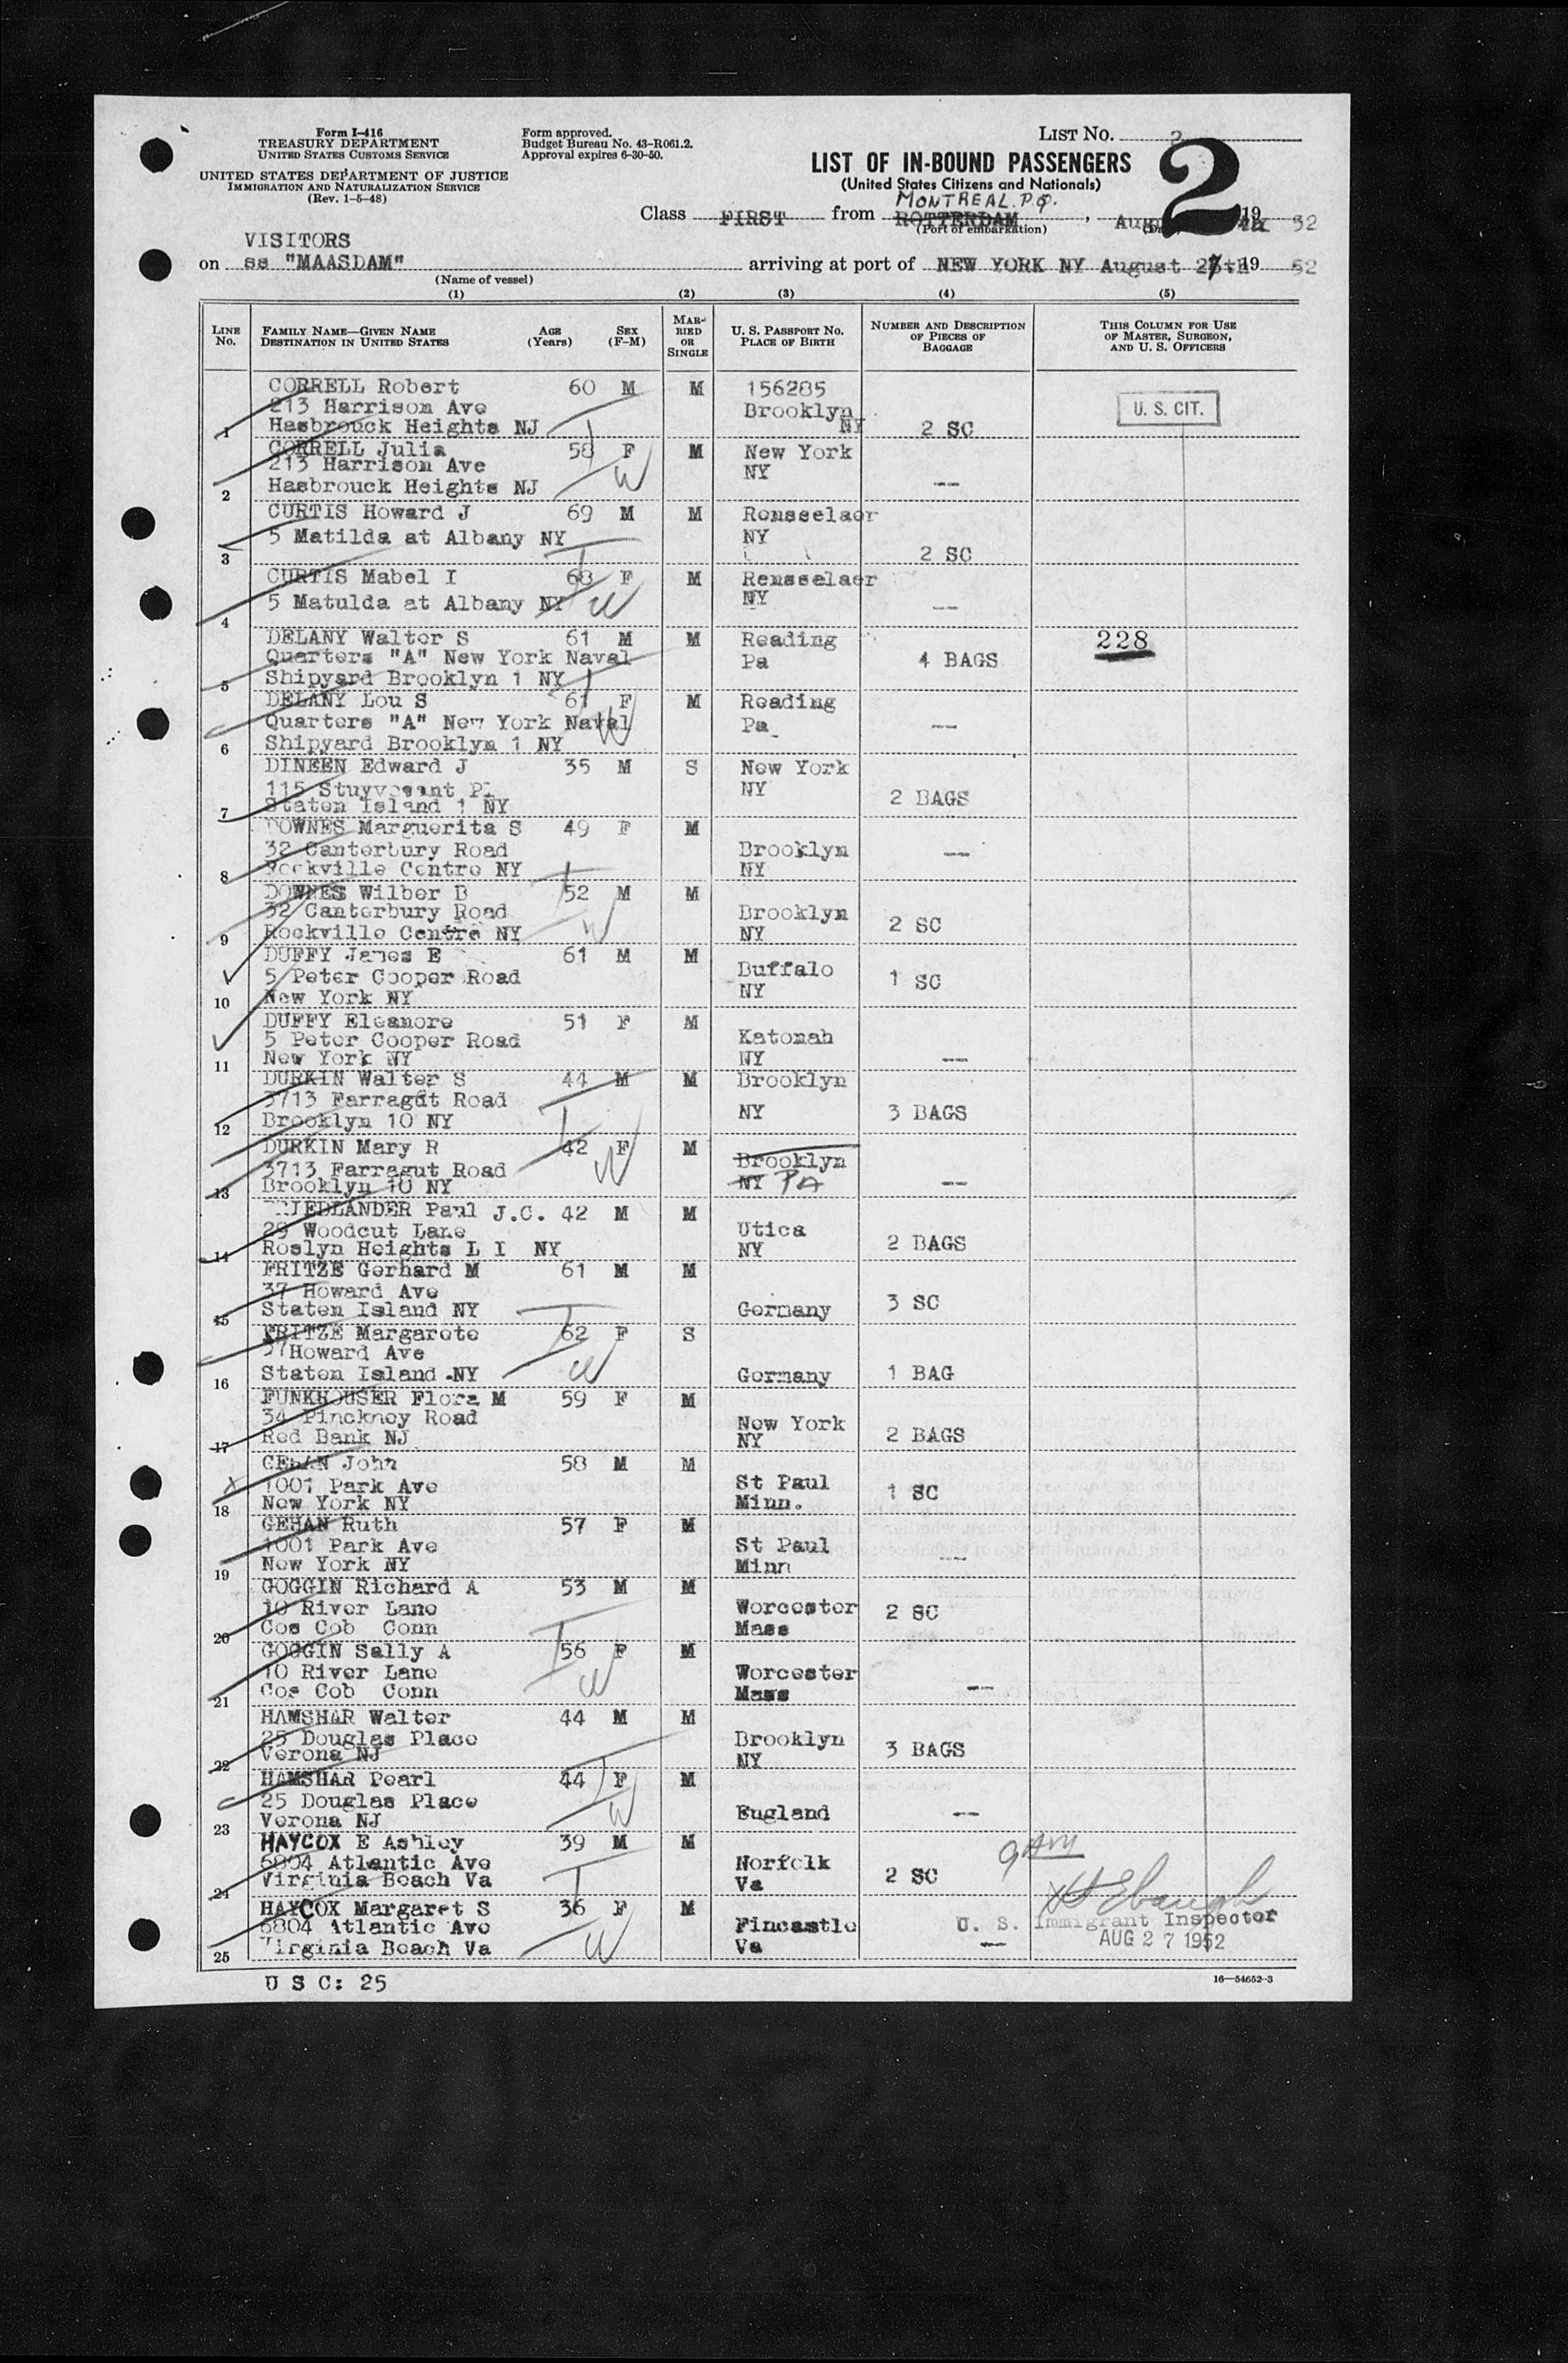 Form I-416
TREASURY DEPARTMENT
UNITED STATES CUSTOMS SERVICE
UNITED STATES DEPARTMENT OF JUSTICE
IMMIGRATION AND NATURALIZATION SERVICE
(Rev. 1-5-48)
Form approved.
Budget Bureau No. 43-R061.2.
Approval expires 6-30-50.
LIST No. 2
2
LIST OF IN-BOUND PASSENGERS
(United States Citizens and Nationals)
MONTREAL. P.Q.
Class FIRST from ROTTERDAM, 19 52
(Port of embarkation)
VISITORS
on ss "MAASDAM" arriving at port of NEW YORK NY August 27th 19 52
(Name of vessel)
(1) (2) (3) (4) (5)
LINE No. FAMILY NAME—GIVEN NAME DESTINATION IN UNITED STATES AGE (Years) SEX (F-M) MARRIED OR SINGLE U. S. PASSPORT No. PLACE OF BIRTH NUMBER AND DESCRIPTION OF PIECES OF BAGGAGE THIS COLUMN FOR USE OF MASTER, SURGEON, AND U. S. OFFICERS
CORRELL Robert 60 M M 156285
213 Harrison Ave Brooklyn U. S. CIT.
1 Hasbrouck Heights NJ NY 2 SC
CORRELL Julia 58 F M New York
213 Harrison Ave NY
2 Hasbrouck Heights NJ W --
CURTIS Howard J 69 M M Rensselaer
5 Matilda at Albany NY NY
3 2 SC
CURTIS Mabel I 68 F M Rensselaer
5 Matulda at Albany NY W NY --
4
DELANY Walter S 61 M M Reading 228
Quarters "A" New York Naval Pa 4 BAGS
5 Shipyard Brooklyn 1 NY
DELANY Lou S 61 F M Reading
Quarters "A" New York Naval W Pa --
6 Shipyard Brooklyn 1 NY
DINEEN Edward J 35 M S New York
115 Stuyvesant Pl NY 2 BAGS
7 Staten Island 1 NY
DOWNES Marguerita S 49 F M
32 Canterbury Road Brooklyn --
8 Rockville Centre NY NY
DOWNES Wilber B 52 M M
32 Canterbury Road Brooklyn 2 SC
9 Rockville Centre NY W NY
DUFFY James E 61 M M
5 Peter Cooper Road Buffalo 1 SC
10 New York NY NY
DUFFY Eleanore 51 F M
5 Peter Cooper Road Katonah
11 New York NY NY --
DURKIN Walter S 44 M M Brooklyn
3713 Farragut Road NY 3 BAGS
12 Brooklyn 10 NY
DURKIN Mary R 42 F M Brooklyn
3713 Farragut Road W NY PA --
13 Brooklyn 10 NY
FRIEDLANDER Paul J.C. 42 M M
29 Woodcut Lane Utica
14 Roslyn Heights L I NY NY 2 BAGS
FRITZE Gerhard M 61 M M
37 Howard Ave 3 SC
15 Staten Island NY Germany
FRITZE Margarete 62 F S
37 Howard Ave W
16 Staten Island NY Germany 1 BAG
FUNKHOUSER Flora M 59 F M
34 Pinckney Road New York
17 Red Bank NJ NY 2 BAGS
GEHAN John 58 M M
1001 Park Ave St Paul 1 SC
18 New York NY Minn.
GEHAN Ruth 57 F M
1001 Park Ave St Paul
19 New York NY Minn --
GOGGIN Richard A 53 M M
10 River Lane Worcester 2 SC
20 Cos Cob Conn Mass
GOGGIN Sally A 56 F M
10 River Lane W Worcester
21 Cos Cob Conn Mass --
HAMSHAR Walter 44 M M
25 Douglas Place Brooklyn 3 BAGS
22 Verona NJ NY
HAMSHAR Pearl 44 F M
25 Douglas Place W England --
23 Verona NJ
HAYCOX E Ashley 39 M M 9 AM
6804 Atlantic Ave Norfolk 2 SC
24 Virginia Beach Va Va
HAYCOX Margaret S 36 F M
6804 Atlantic Ave Fincastle U. S. Immigrant Inspector
25 Virginia Beach Va W Va -- AUG 27 1952
U S C: 25
16—54652-3